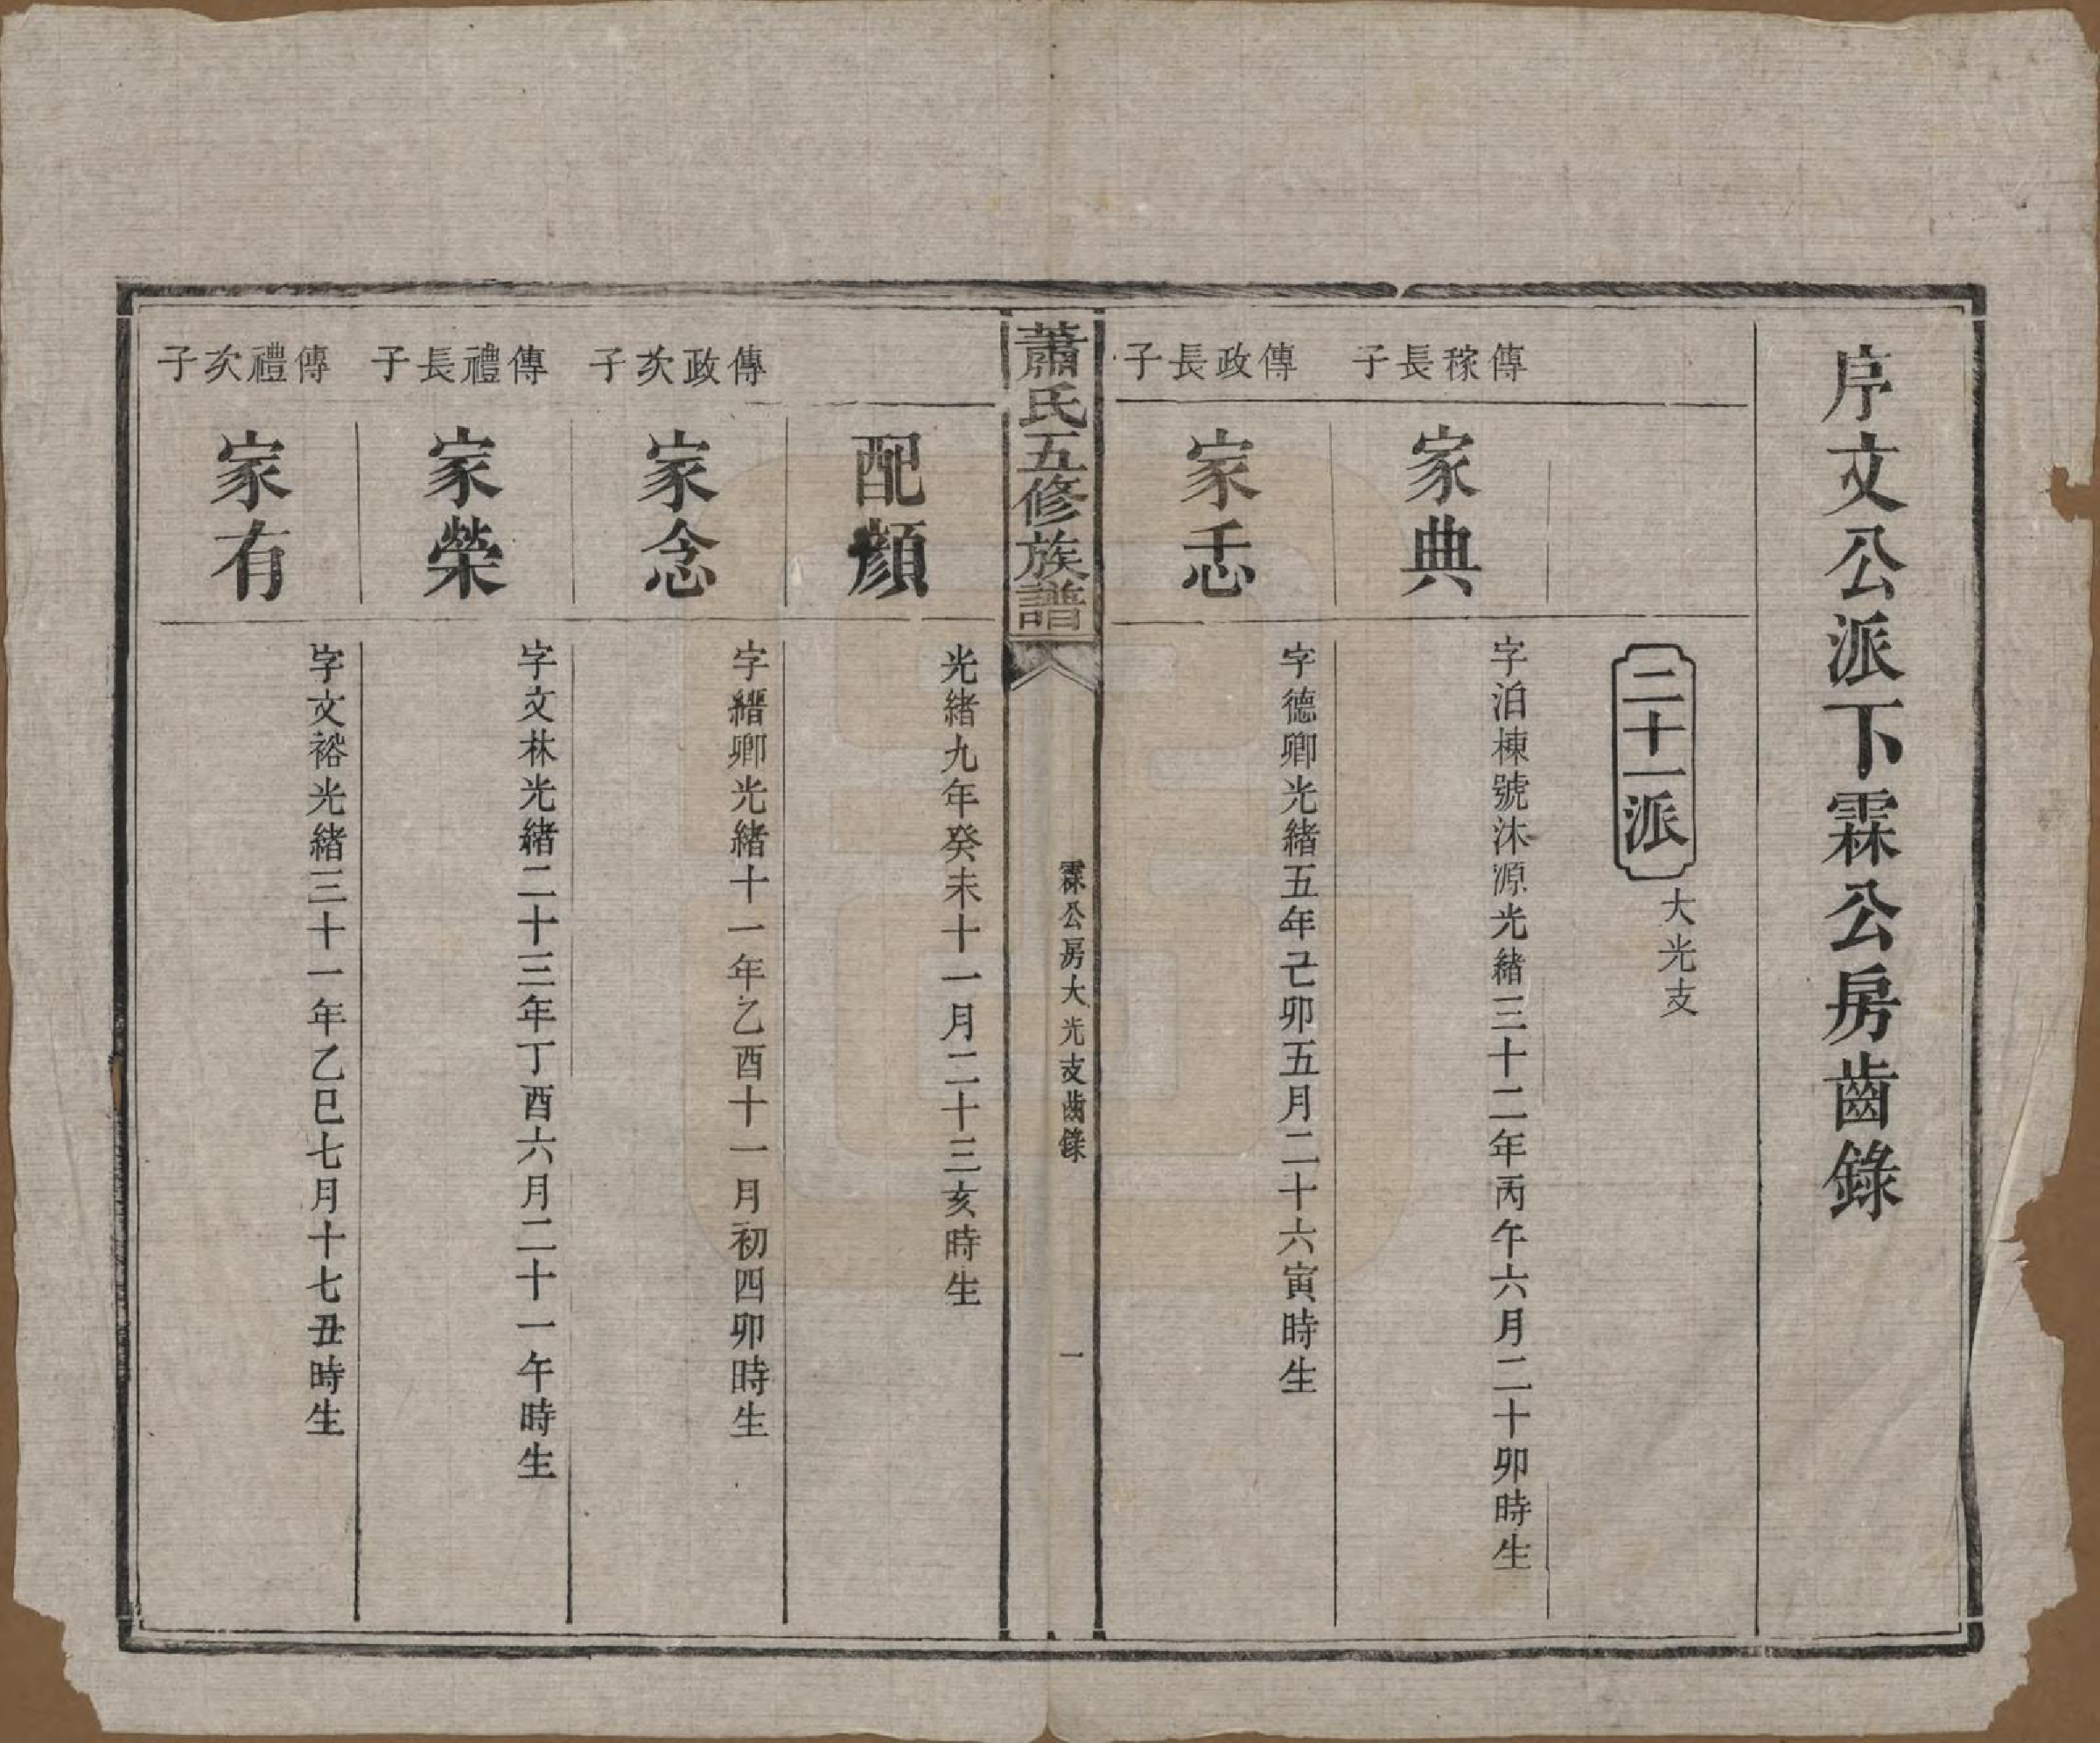 序文公派下霖公房齒錄
二十一派
大光支
傳稼長子
家典
字泊棟號沐源光緒三十二年丙午六月二十卯時生
傳政長子
家忎
字德卿光緒五年己卯五月二十六寅時生
蕭氏五修族譜
霖公房大光支齒錄
一
配顏
光緒九年癸未十一月二十三亥時生
傳政次子
家念
字縉卿光緒十一年乙酉十一月初四卯時生
傳禮長子
家榮
字文林光緒二十三年丁酉六月二十一午時生
傳禮次子
家有
字文裕光緒三十一年乙巳七月十七丑時生